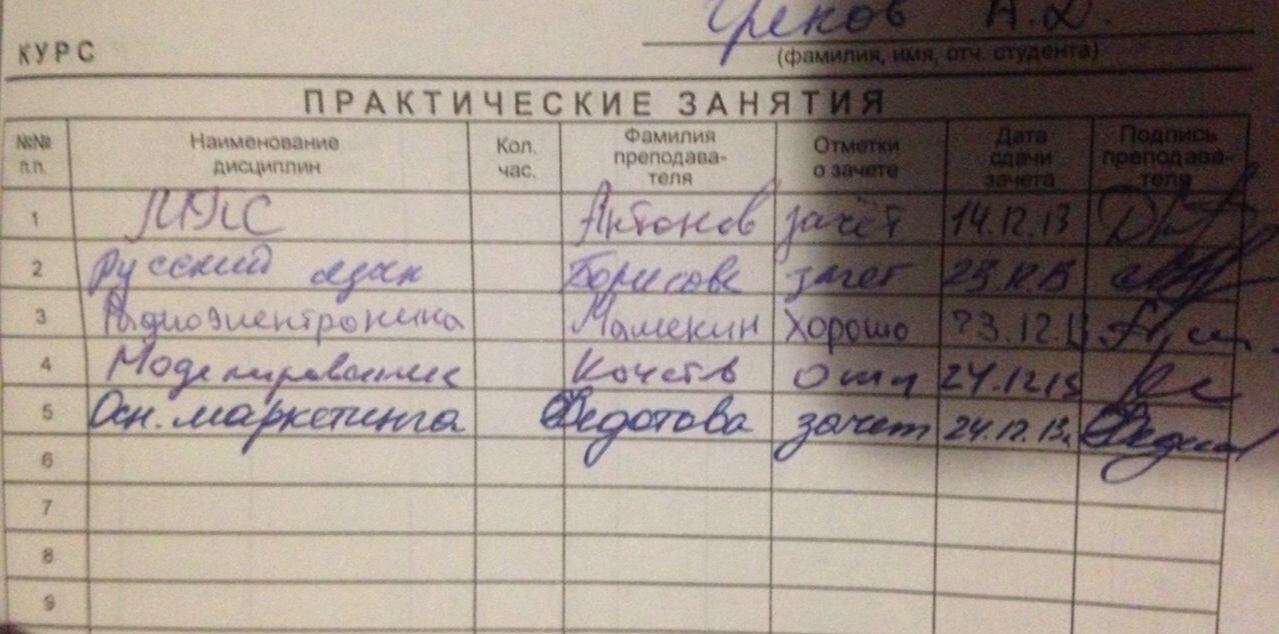 Греков А.Д.
КУРС
(фамилия, имя, отч. студента)
ПРАКТИЧЕСКИЕ ЗАНЯТИЯ
№№ п.п. Наименование дисциплин Кол. час. Фамилия преподава- теля Отметки о зачете Дата сдачи зачета Подпись преподава- теля
1 Антонов зачёт 14.12.13
2 Русский язык Борисова зачет
3 Радиоэлектроника Мамекин Хорошо 23.12.13
4 Моделирование отл 24.12.13
5 Осн. маркетинга Федотова зачет 24.12.13г
6
7
8
9